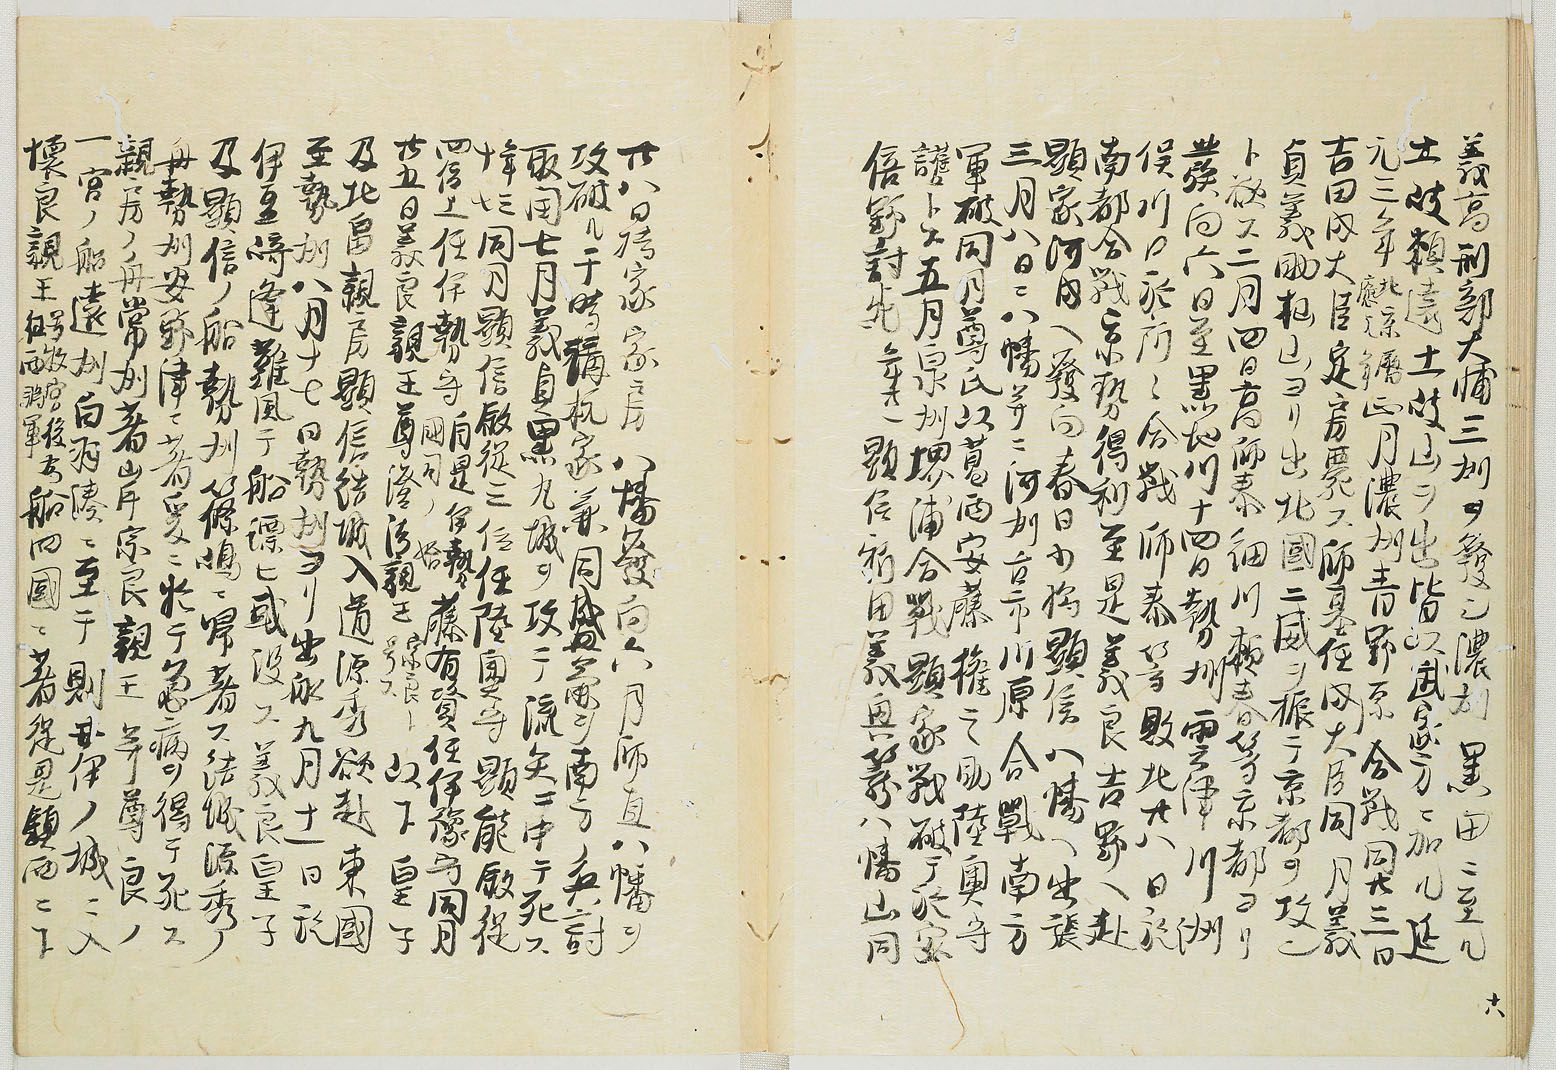 義高刑部大輔三州ヲ發シ濃州黒田ニ至ル
土岐頼遠土岐山ヲ出皆以武家方ニ加ル延
元三年北京暦應元年正月濃州青野原合戦同廿三日
吉田内大臣定房薨ス師基任内大臣同月義
貞義助杣山ヨリ出北國ニ威ヲ振テ京都ヲ攻
ト欲ス二月四日高師泰細川頼春等京都ヨリ
發向六日至黒地川十四日勢州雲津川洲
俣川口於所々合戦師泰等敗北廿八日於
南都合戦京勢得利至是義良吉野ヘ赴
顕家河内ヘ發向春日少将顕信八幡ヘ出張
三月八日ニ八幡并ニ河州古市川原合戰南方
軍破同月尊氏以葛西安藤權之助陸奥守
護トス五月泉州堺浦合戰顕家戰破テ於安
倍野討死年廿一顕信新田義興等八幡山同
廿八日将家家房八幡發向六月師直八幡ヲ
攻破ル于時講杭家兼同盛兼ヲ南方ノ兵討
取閏七月義貞黒丸城ヲ攻テ流矢ニ中テ死ス
年 同月顕信敍從三位任陸奥守顕能敍從
四位上任伊勢守國司ノ始自是伊勢藤有資任伊豫守同月
廿五日義良親王尊澄法親王宗良ト号ス以下皇子
及北畠親房顕信結城入道源秀欲赴東國
至勢州八月十七日勢州ヨリ出船九月十一日於
伊豆崎逢難風テ船漂ヒ或没ス義良皇子
及顕信ノ船勢州篠嶋ニ帰著ス結城源秀ノ
舟勢州安野津ニ著爰ニ於テ病ヲ得テ死ス
親房ノ舟常州著山片宗良親王并尊良ノ
一宮ノ船遠州白羽湊ニ至テ則井伊ノ城ニ入
懐良親王号故宮後征西将軍船四國ニ著從是鎮西ニ下